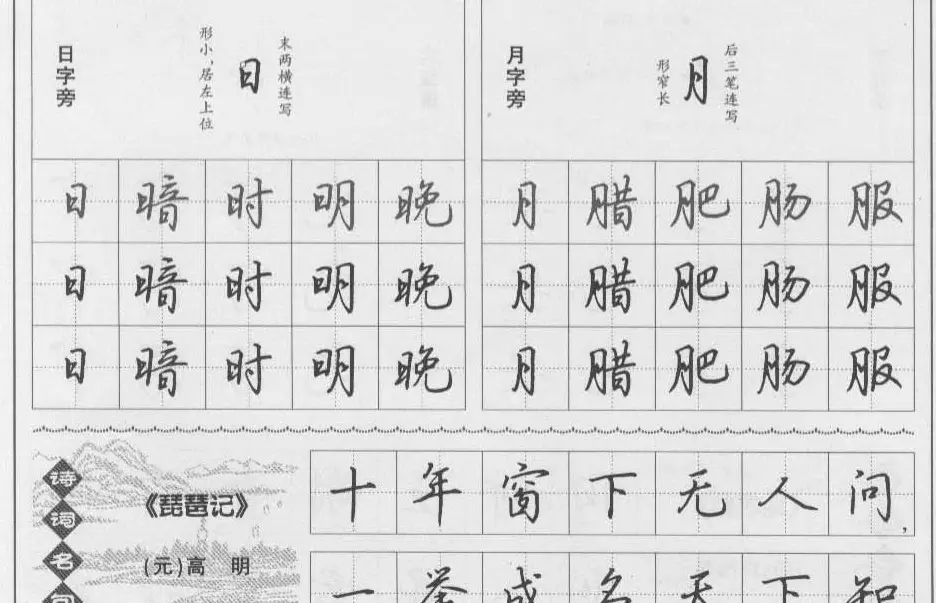 日字旁
形小，居左上位
日
末两横连写
月字旁
形窄长
月
后三笔连写
日 暗 时 明 晚
月 腊 肥 肠 服
日 暗 时 明 晚
月 腊 肥 肠 服
日 暗 时 明 晚
月 腊 肥 肠 服
诗词名句
《琵琶记》
(元)高 明
十年窗下无人问，
一举成名天下知